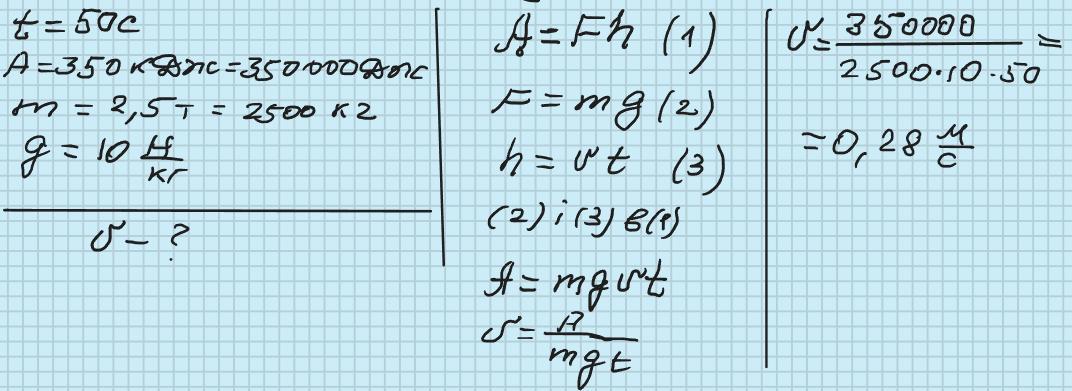 t = 50с
A = 350 кДж = 350000Дж
m = 2,5 т = 2500 кг
g = 10 Н/кг
v - ?
A = Fh (1)
F = mg (2)
h = vt (3)
(2) і (3) в (1)
A = mgvt
v = A/mgt
v = 350000/2500·10·50 =
= 0,28 м/с